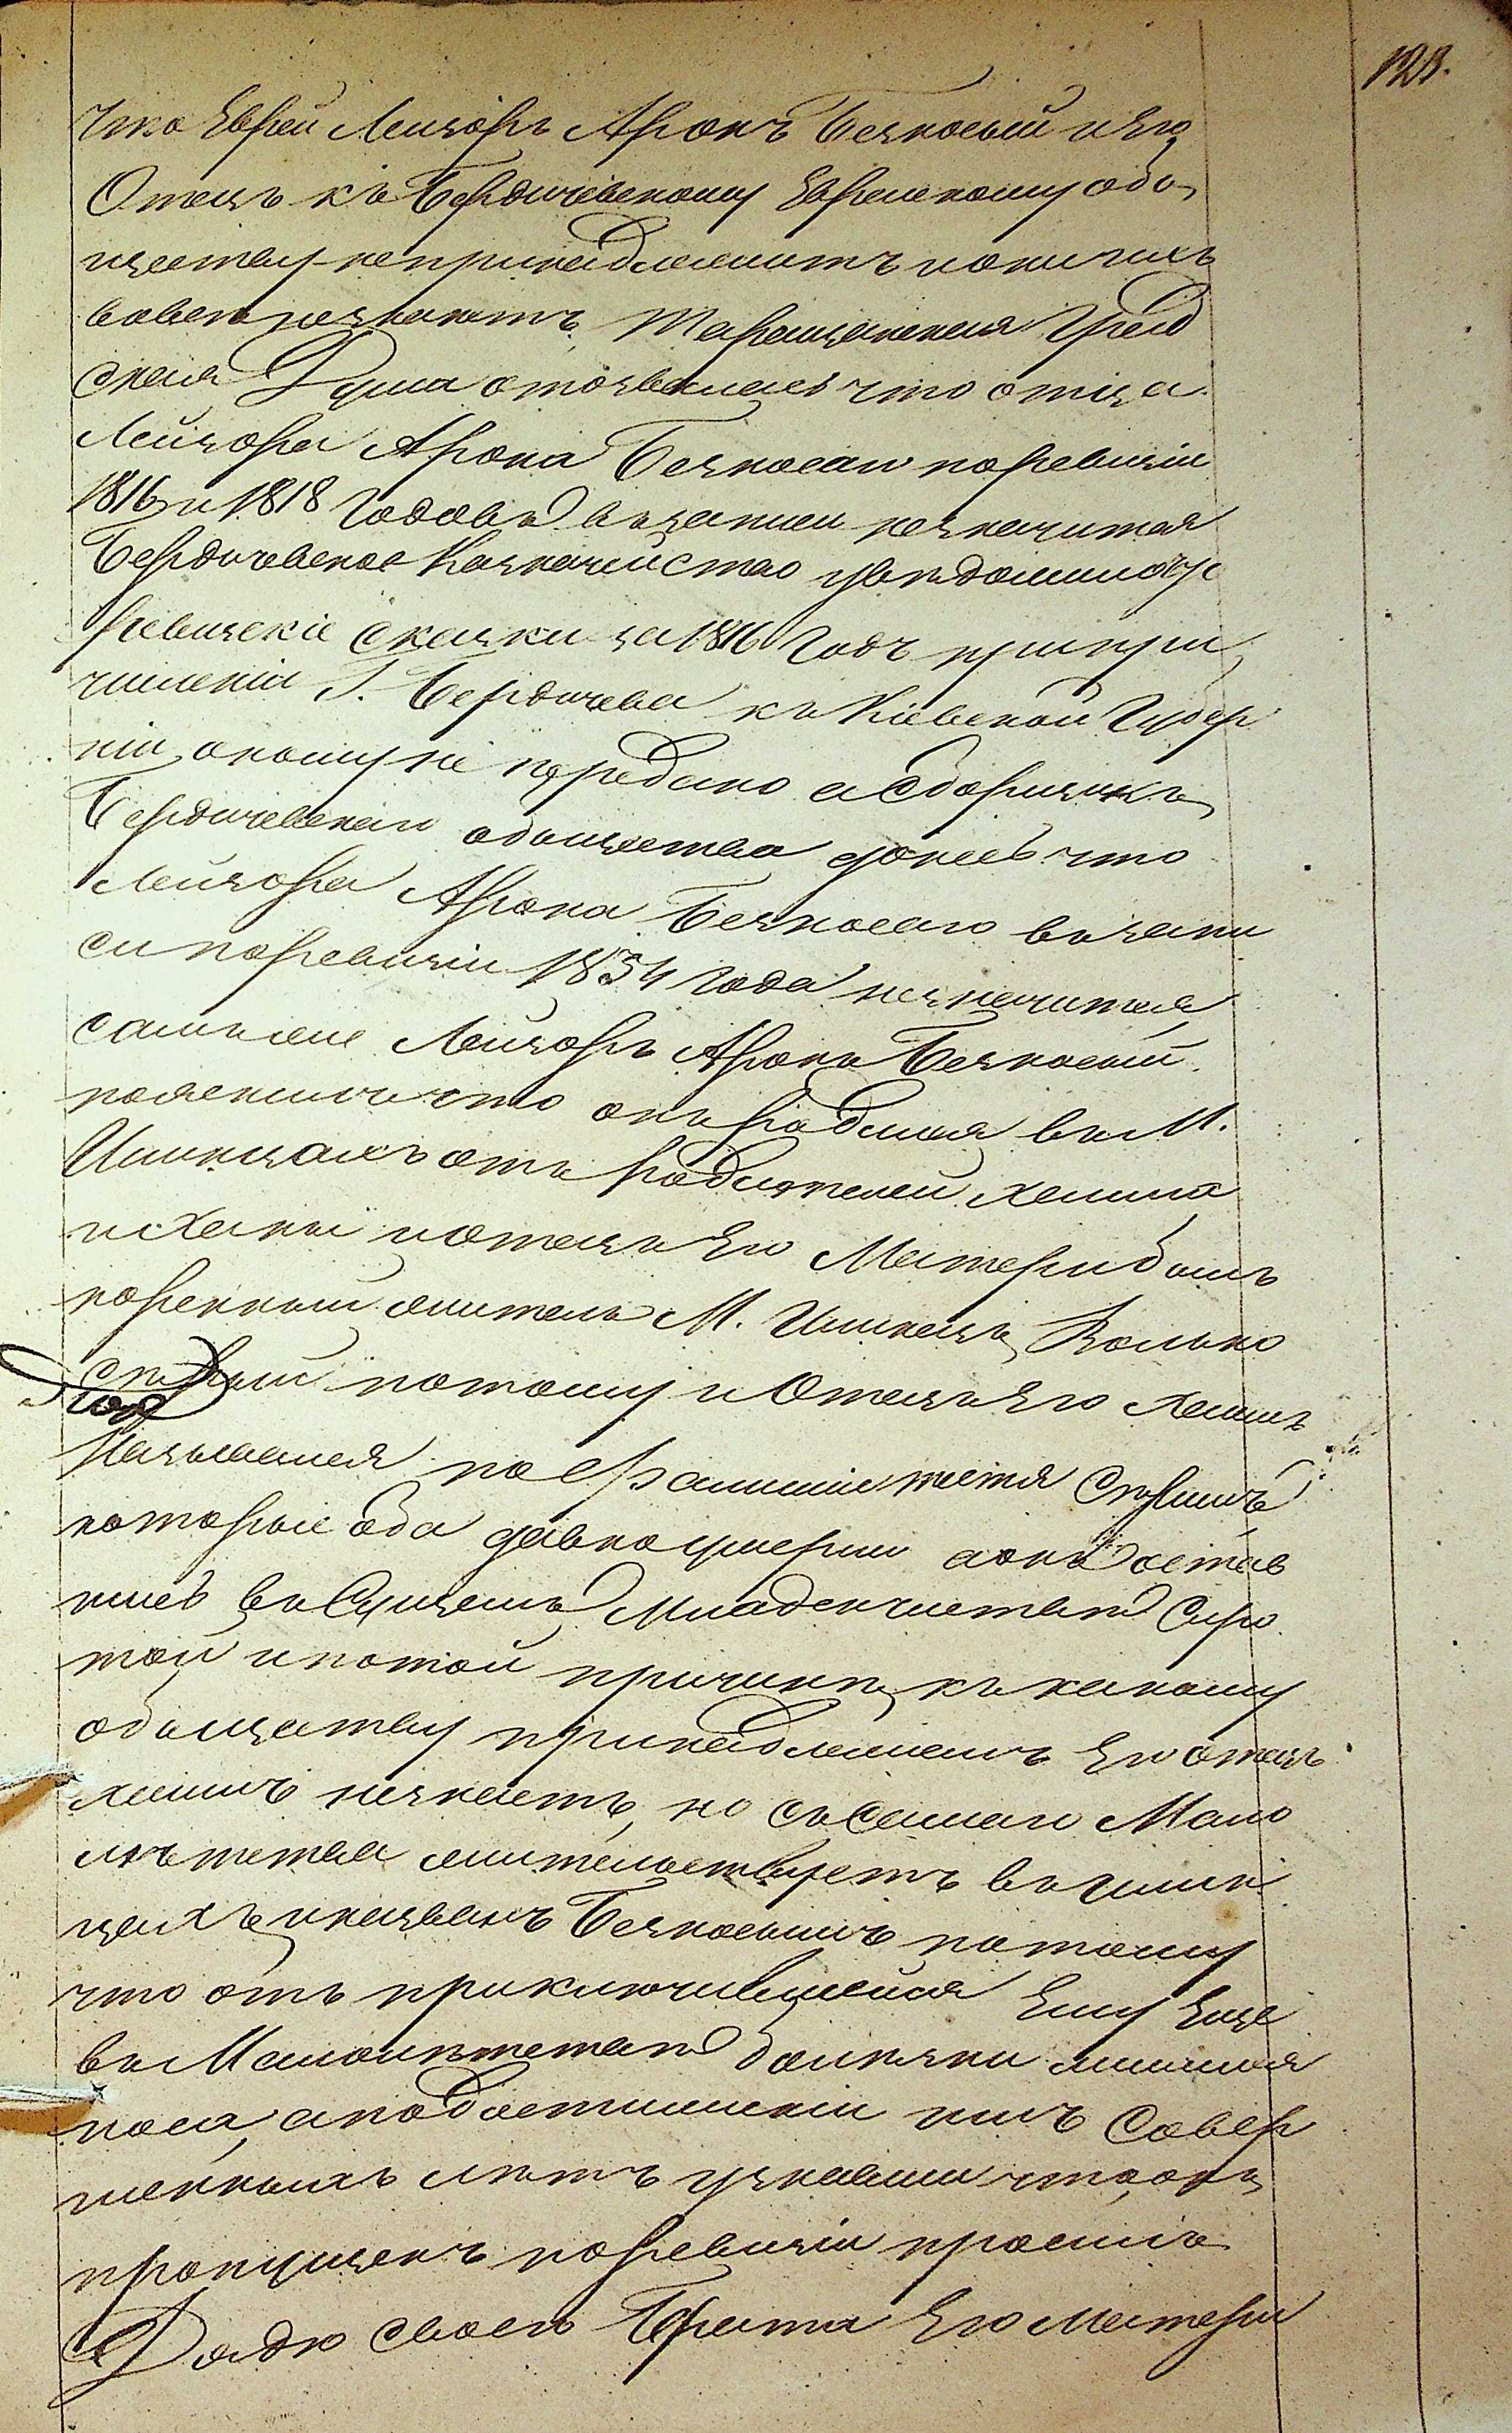 121.
что Еврей Лейзоръ Аронъ Безносый и его
Отецъ къ Бердичевскому Еврейскому обо-
ществу непринадлежитъ и они ихъ
вовсе незнаютъ, Таращанская Град
ская Дума отозвалась что отца
Лейзора Арона Безносаго поревизіи
1816 и 1818 годовъ взаписи незначится
Бердичевское Казначейство уведомило что
Ревизскіе сказки за 1816 годъ припри
числении Г. Бердичева къ Кіевской Губер
ніи, оному не передано а Сборщикъ
Бердичевскаго общества донесъ что
Лейзора Арона Безносаго взапи
си поревизіи 1834 года незначится,
самъ же Лейзоръ Аронъ Безносый
пояснилъ что онъ родился въ М.
Шпицахъ отъ родителей Хаима
и Ханы и отецъ Его Матери былъ
коренный житель М. Волько
потому и Отецъ Его Хаимъ
Назывался по Фамиліи тестя
которые оба давно умерли а онъ остав
шись въ Сущемъ Младенчестве Сиро
той и потой причине къ какому
обществу принадлежалъ Его отецъ
Хаимъ незнаетъ, но съ Самаго Мало
летства жительствуетъ въ
цахъ и названъ Безносымъ потому
что отъ приключившейся Ему Еще
въ Малолетстве болезни лишился
носа, а подостиженіи имъ Совер
шенныхъ летъ узнавши что онъ
пропущенъ поревизіи просилъ
Дядю своего Брата Его Матери